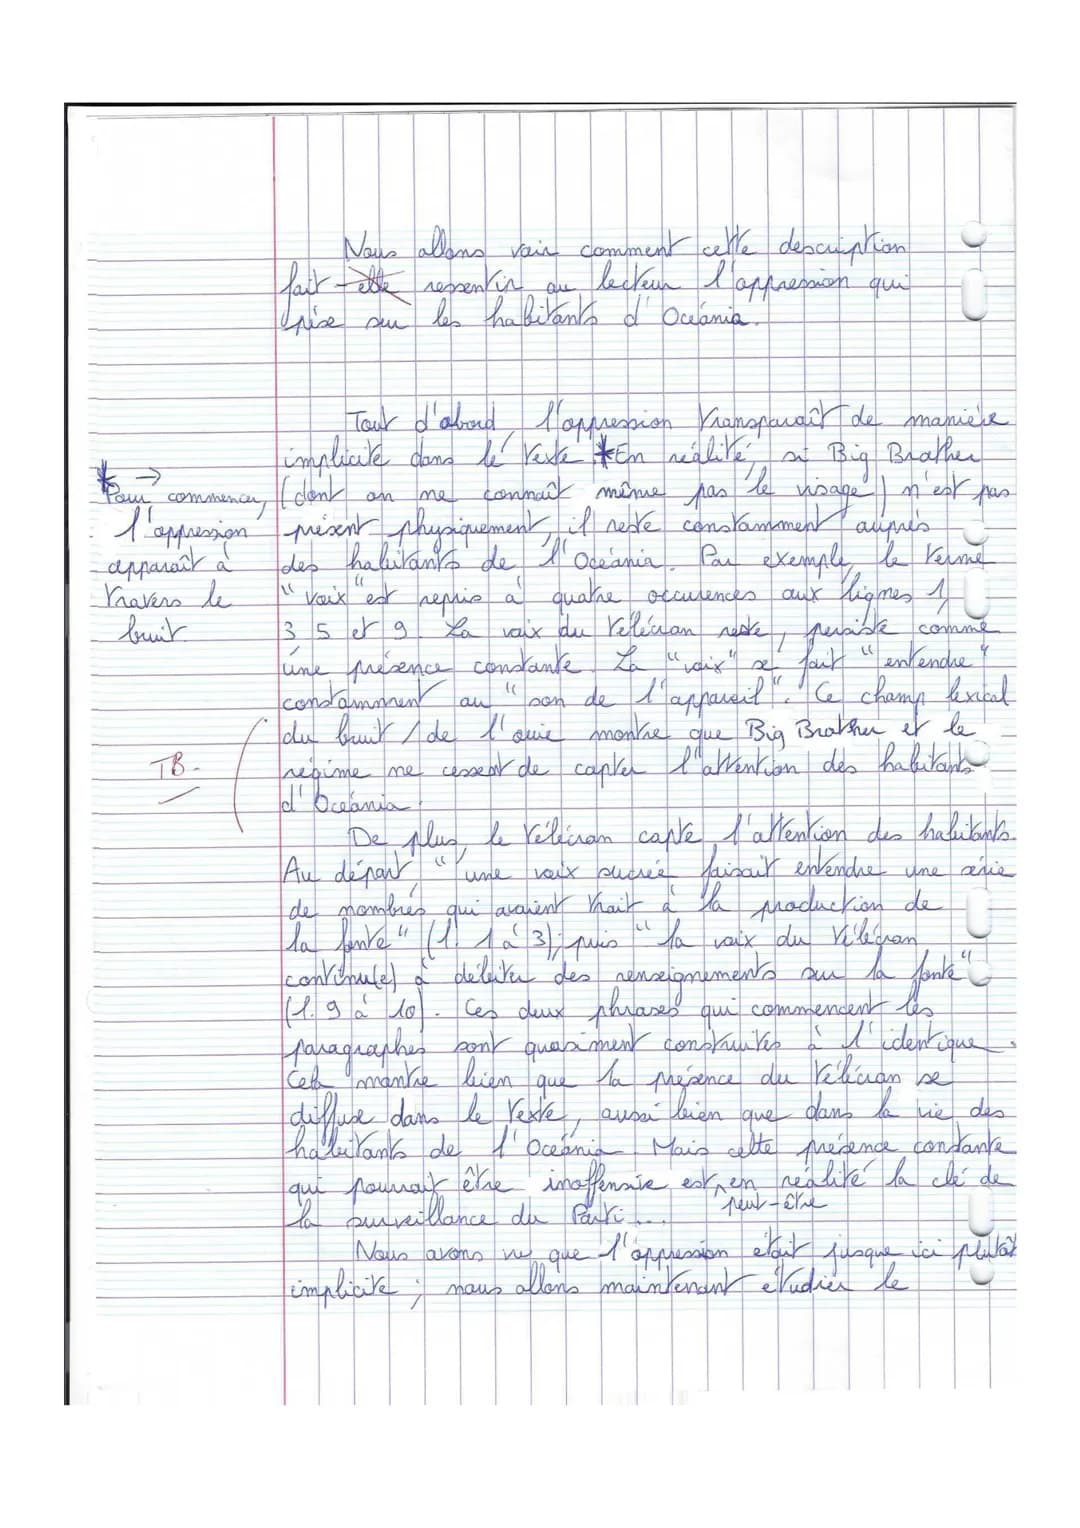 Nous allons voir comment cette description
fait-elle ressentir au lecteur l'oppression qui
pèse sur les habitants d'Océania.
Tout d'abord, l'oppression transparaît de manière
implicite dans le texte. *En réalité, si Big Brother
(dont on ne connaît même pas le visage) n'est pas
présent physiquement, il reste constamment auprès
des habitants de l'Océania. Par exemple, le terme
"voix" est repris à quatre occurences aux lignes 1,
3 5 et 9. La voix du télécran reste, persiste comme
une présence constante. La "voix" se fait "entendre"
constamment au "son de l'appareil". Ce champ lexical
du bruit / de l'ouïe montre que Big Brother et le
régime ne cessent de capter l'attention des habitants
d'Océania.
* →
Pour commencer,
l'oppression
apparaît à
travers le
bruit.
TB.
De plus, le télécran capte l'attention des habitants.
Au départ, "une voix sucrée faisait entendre une série
de nombres qui avaient trait à la production de
la fonte" (l. 1 à 3), puis "la voix du télécran
continu(e) à débiter des renseignements sur la fonte"
(l. 9 à 10). Ces deux phrases qui commencent les
paragraphes sont quasiment construites à l'identique.
Cela montre bien que la présence du télécran se
diffuse dans le texte, aussi bien que dans la vie des
habitants de l'Océania. Mais cette présence constante
qui pourrait être inoffensive est en réalité la clé de
peut-être
la surveillance du Parti...
Nous avons vu que l'oppression était jusque ici plutôt
implicite ; nous allons maintenant étudier le